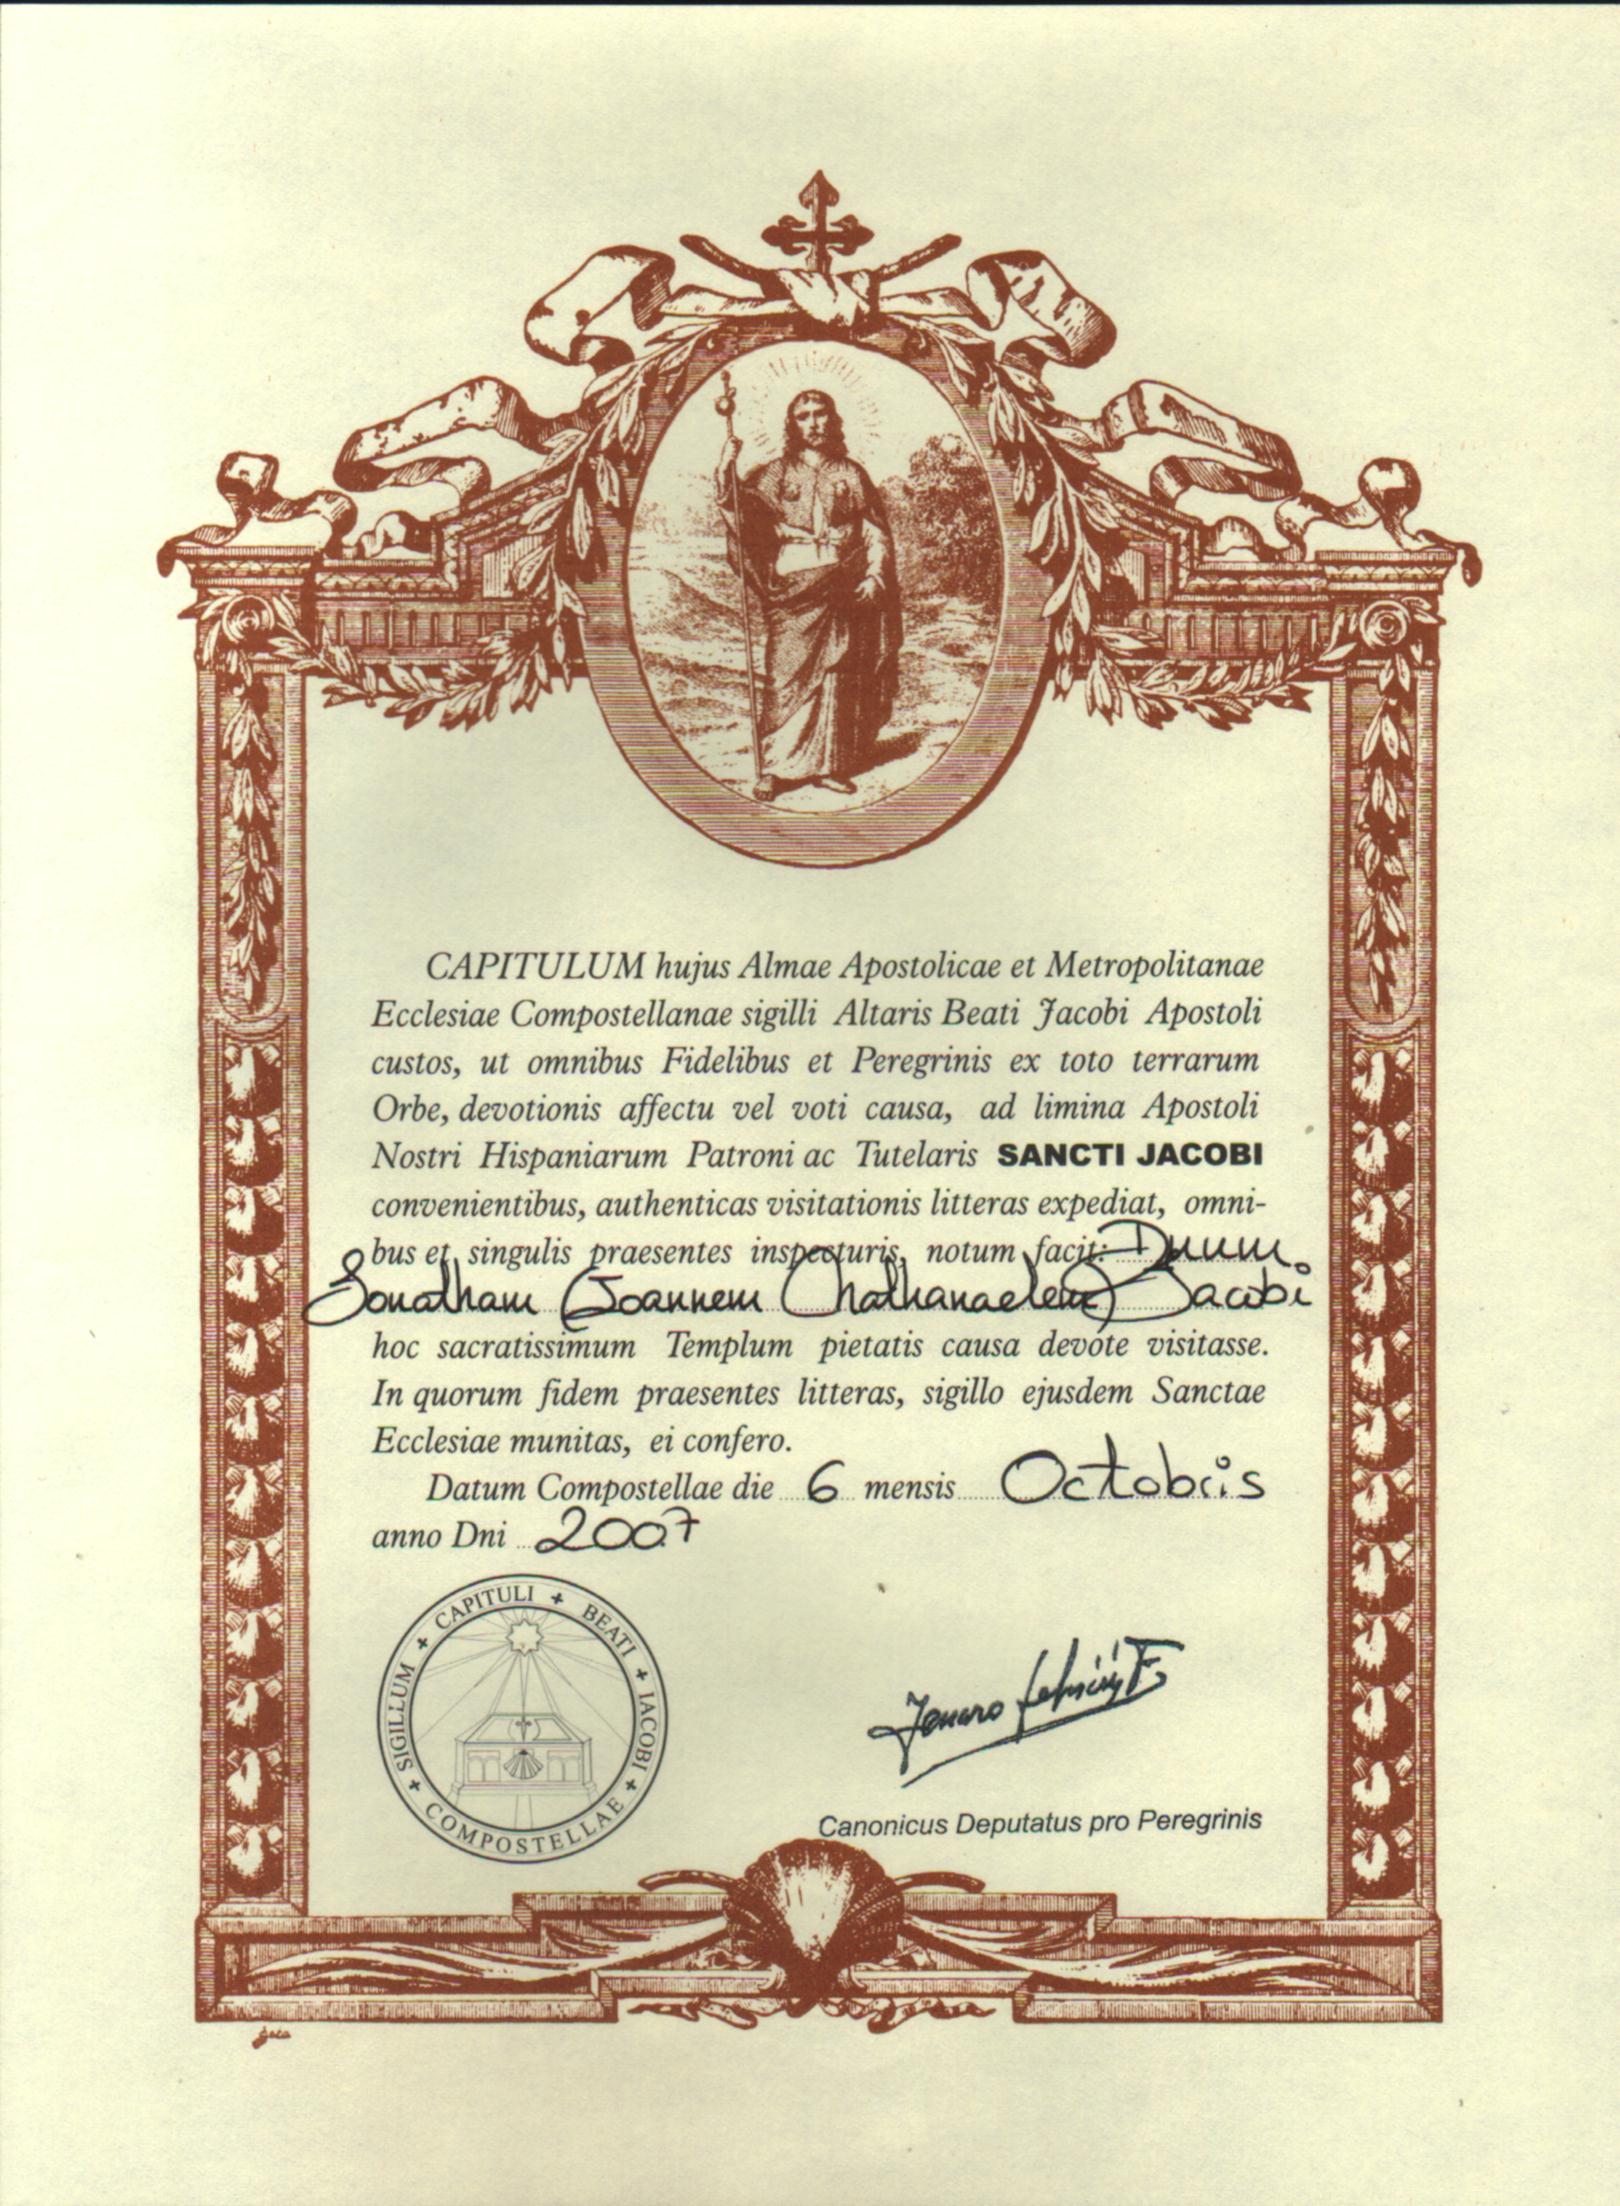 CAPITULUM hujus Almae Apostolicae et Metropolitanae
Ecclesiae Compostellanae sigilli Altaris Beati Jacobi Apostoli
custos, ut omnibus Fidelibus et Peregrinis ex toto terrarum
Orbe, devotionis affectu vel voti causa, ad limina Apostoli
Nostri Hispaniarum Patroni ac Tutelaris SANCTI JACOBI
convenientibus, authenticas visitationis litteras expediat, omni-
bus et singulis praesentes inspecturis, notum facit: Dnum.
Jonatham (Joannem Nathanaelem) Jacobi
hoc sacratissimum Templum pietatis causa devote visitasse.
In quorum fidem praesentes litteras, sigillo ejusdem Sanctae
Ecclesiae munitas, ei confero.
Datum Compostellae die 6 mensis Octobris
anno Dni 2007
SIGILLUM + CAPITULI + BEATI + IACOBI + COMPOSTELLAE +
Jenaro
Canonicus Deputatus pro Peregrinis